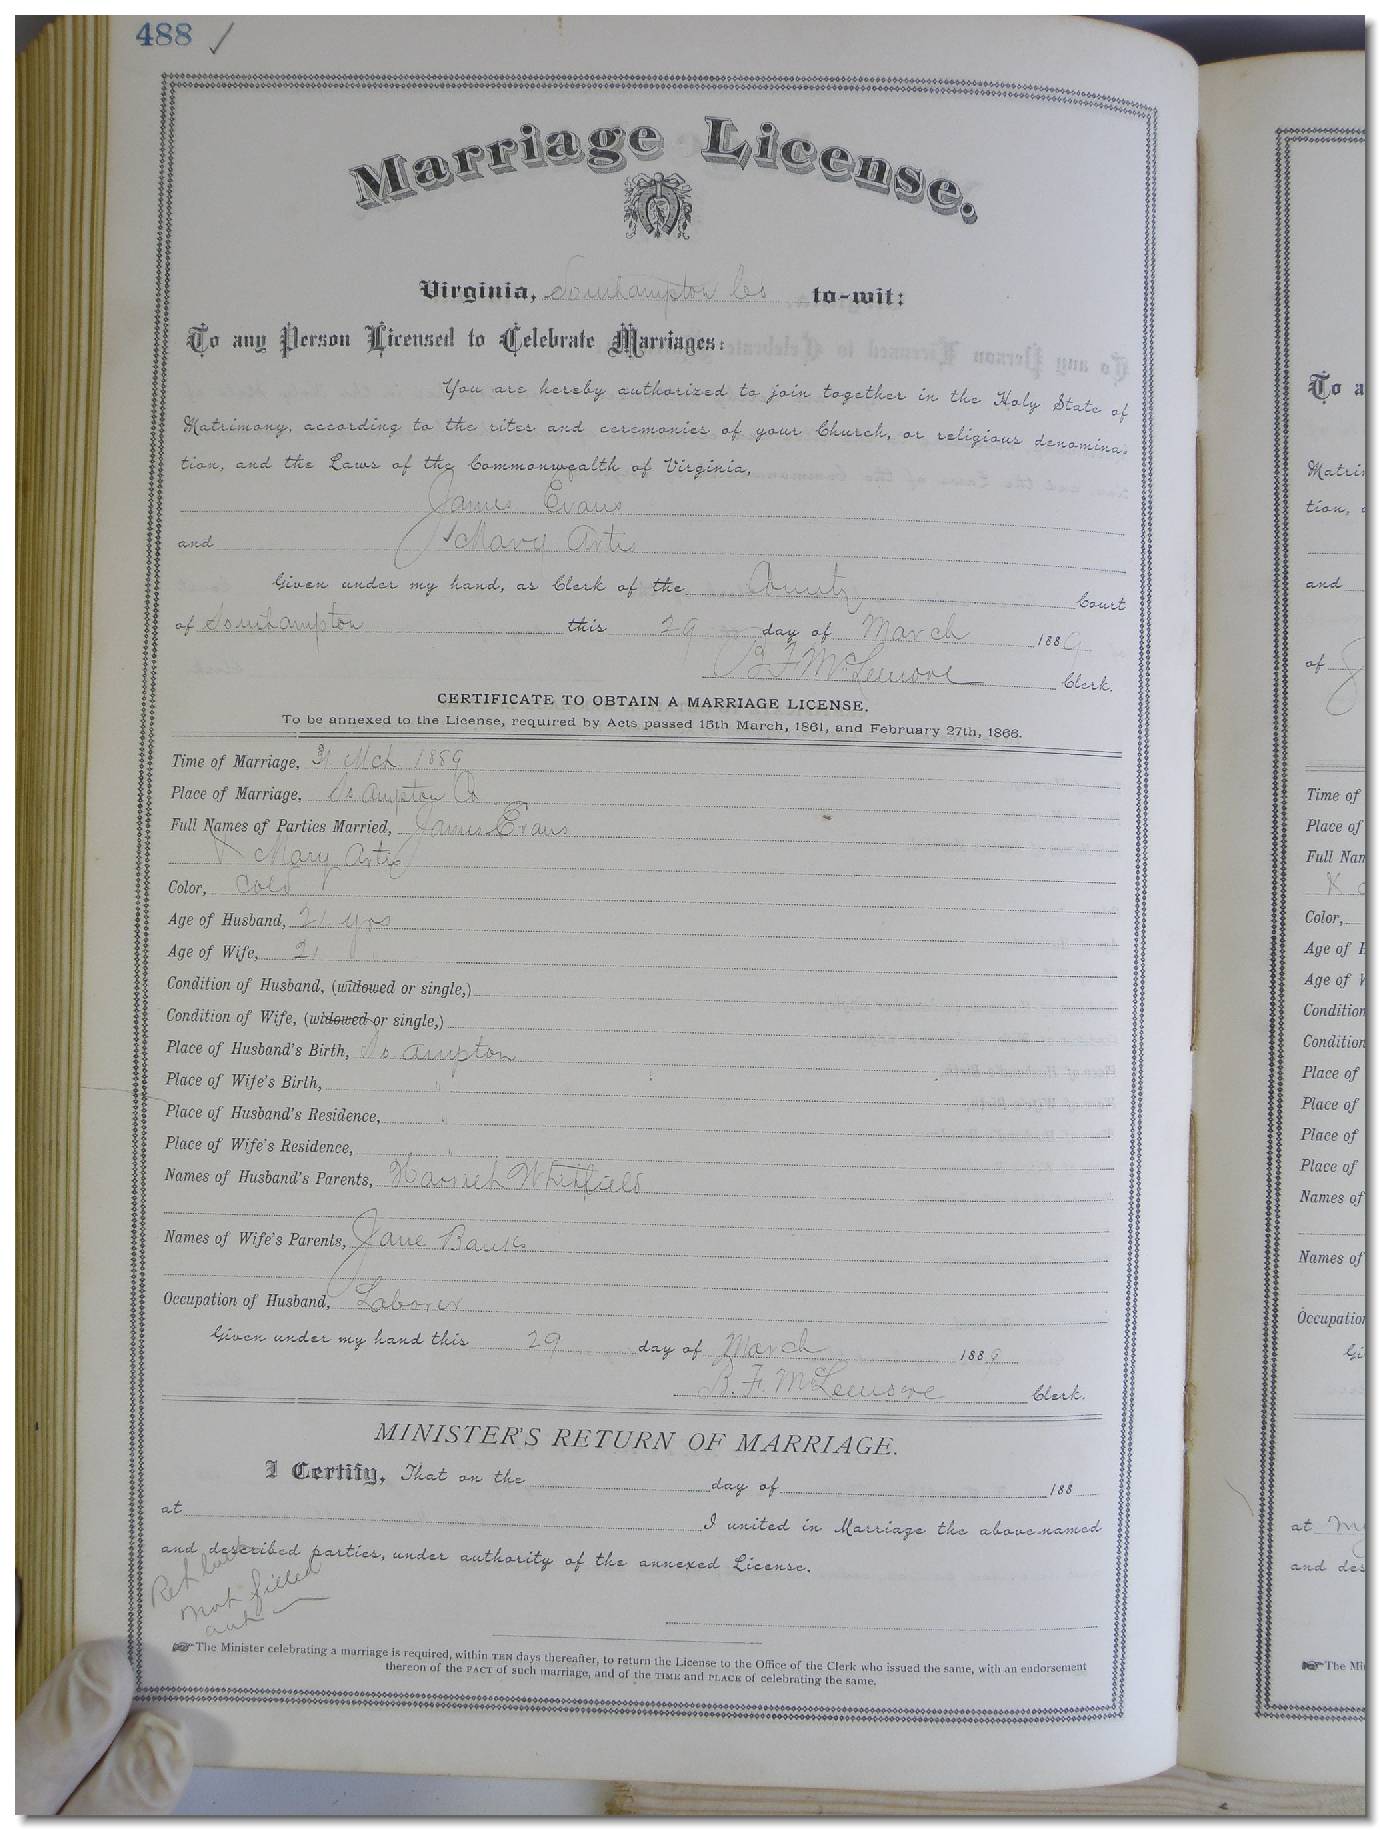 488 ✓
Marriage License.
Virginia, Southampton Co to-wit:
To any Person Licensed to Celebrate Marriages:
You are hereby authorized to join together in the Holy State of
Matrimony, according to the rites and ceremonies of your Church, or religious denomina-
tion, and the Laws of the Commonwealth of Virginia,
James Evans
and Mary Artis
Given under my hand, as Clerk of the County Court
of Southampton this 29 day of March 1889
B F McLemore Clerk.
CERTIFICATE TO OBTAIN A MARRIAGE LICENSE.
To be annexed to the License, required by Acts passed 15th March, 1861, and February 27th, 1866.
Time of Marriage, 31 Mch 1889
Place of Marriage, So ampton Co
Full Names of Parties Married, James Evans
& Mary Artis
Color, Cold
Age of Husband, 21 yrs
Age of Wife, 21
Condition of Husband, (widowed or single,)
Condition of Wife, (widowed or single,)
Place of Husband's Birth, So ampton
Place of Wife's Birth, "
Place of Husband's Residence, "
Place of Wife's Residence,
Names of Husband's Parents, Harriet Whitfield
Names of Wife's Parents, Jane Banks
Occupation of Husband, Laborer
Given under my hand this 29 day of March 1889
B. F. McLemore Clerk.
MINISTER'S RETURN OF MARRIAGE.
I Certify, That on the day of 188
at I united in Marriage the above-named
and described parties, under authority of the annexed License.
not filled
out
The Minister celebrating a marriage is required, within TEN days thereafter, to return the License to the Office of the Clerk who issued the same, with an endorsement
thereon of the FACT of such marriage, and of the TIME and PLACE of celebrating the same.
To a
Matri
tion,
and
of
Time of
Place of
Full Nam
&
Color,
Age of H
Age of W
Condition
Condition
Place of
Place of
Place of
Place of
Names of
Names of
Occupation
Gi
at
and des
The Mi